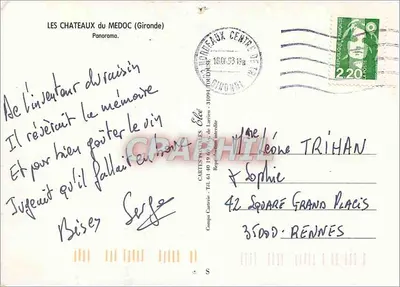 LES CHATEAUX du MEDOC (Gironde)
Panorama.
De l'inventeur du raisin
Il révérait la mémoire
Et pour bien goûter le vin
Jugeait qu'il fallait en boire
Bises Serge
BORDEAUX CENTRE DE TRI
GIRONDE
2,20
Mme Léone TRIHAN
& Sophie
42 SQUARE GRAND PLACIS
35000 - RENNES
CARTES
Elcé
S
CPARHPHIL